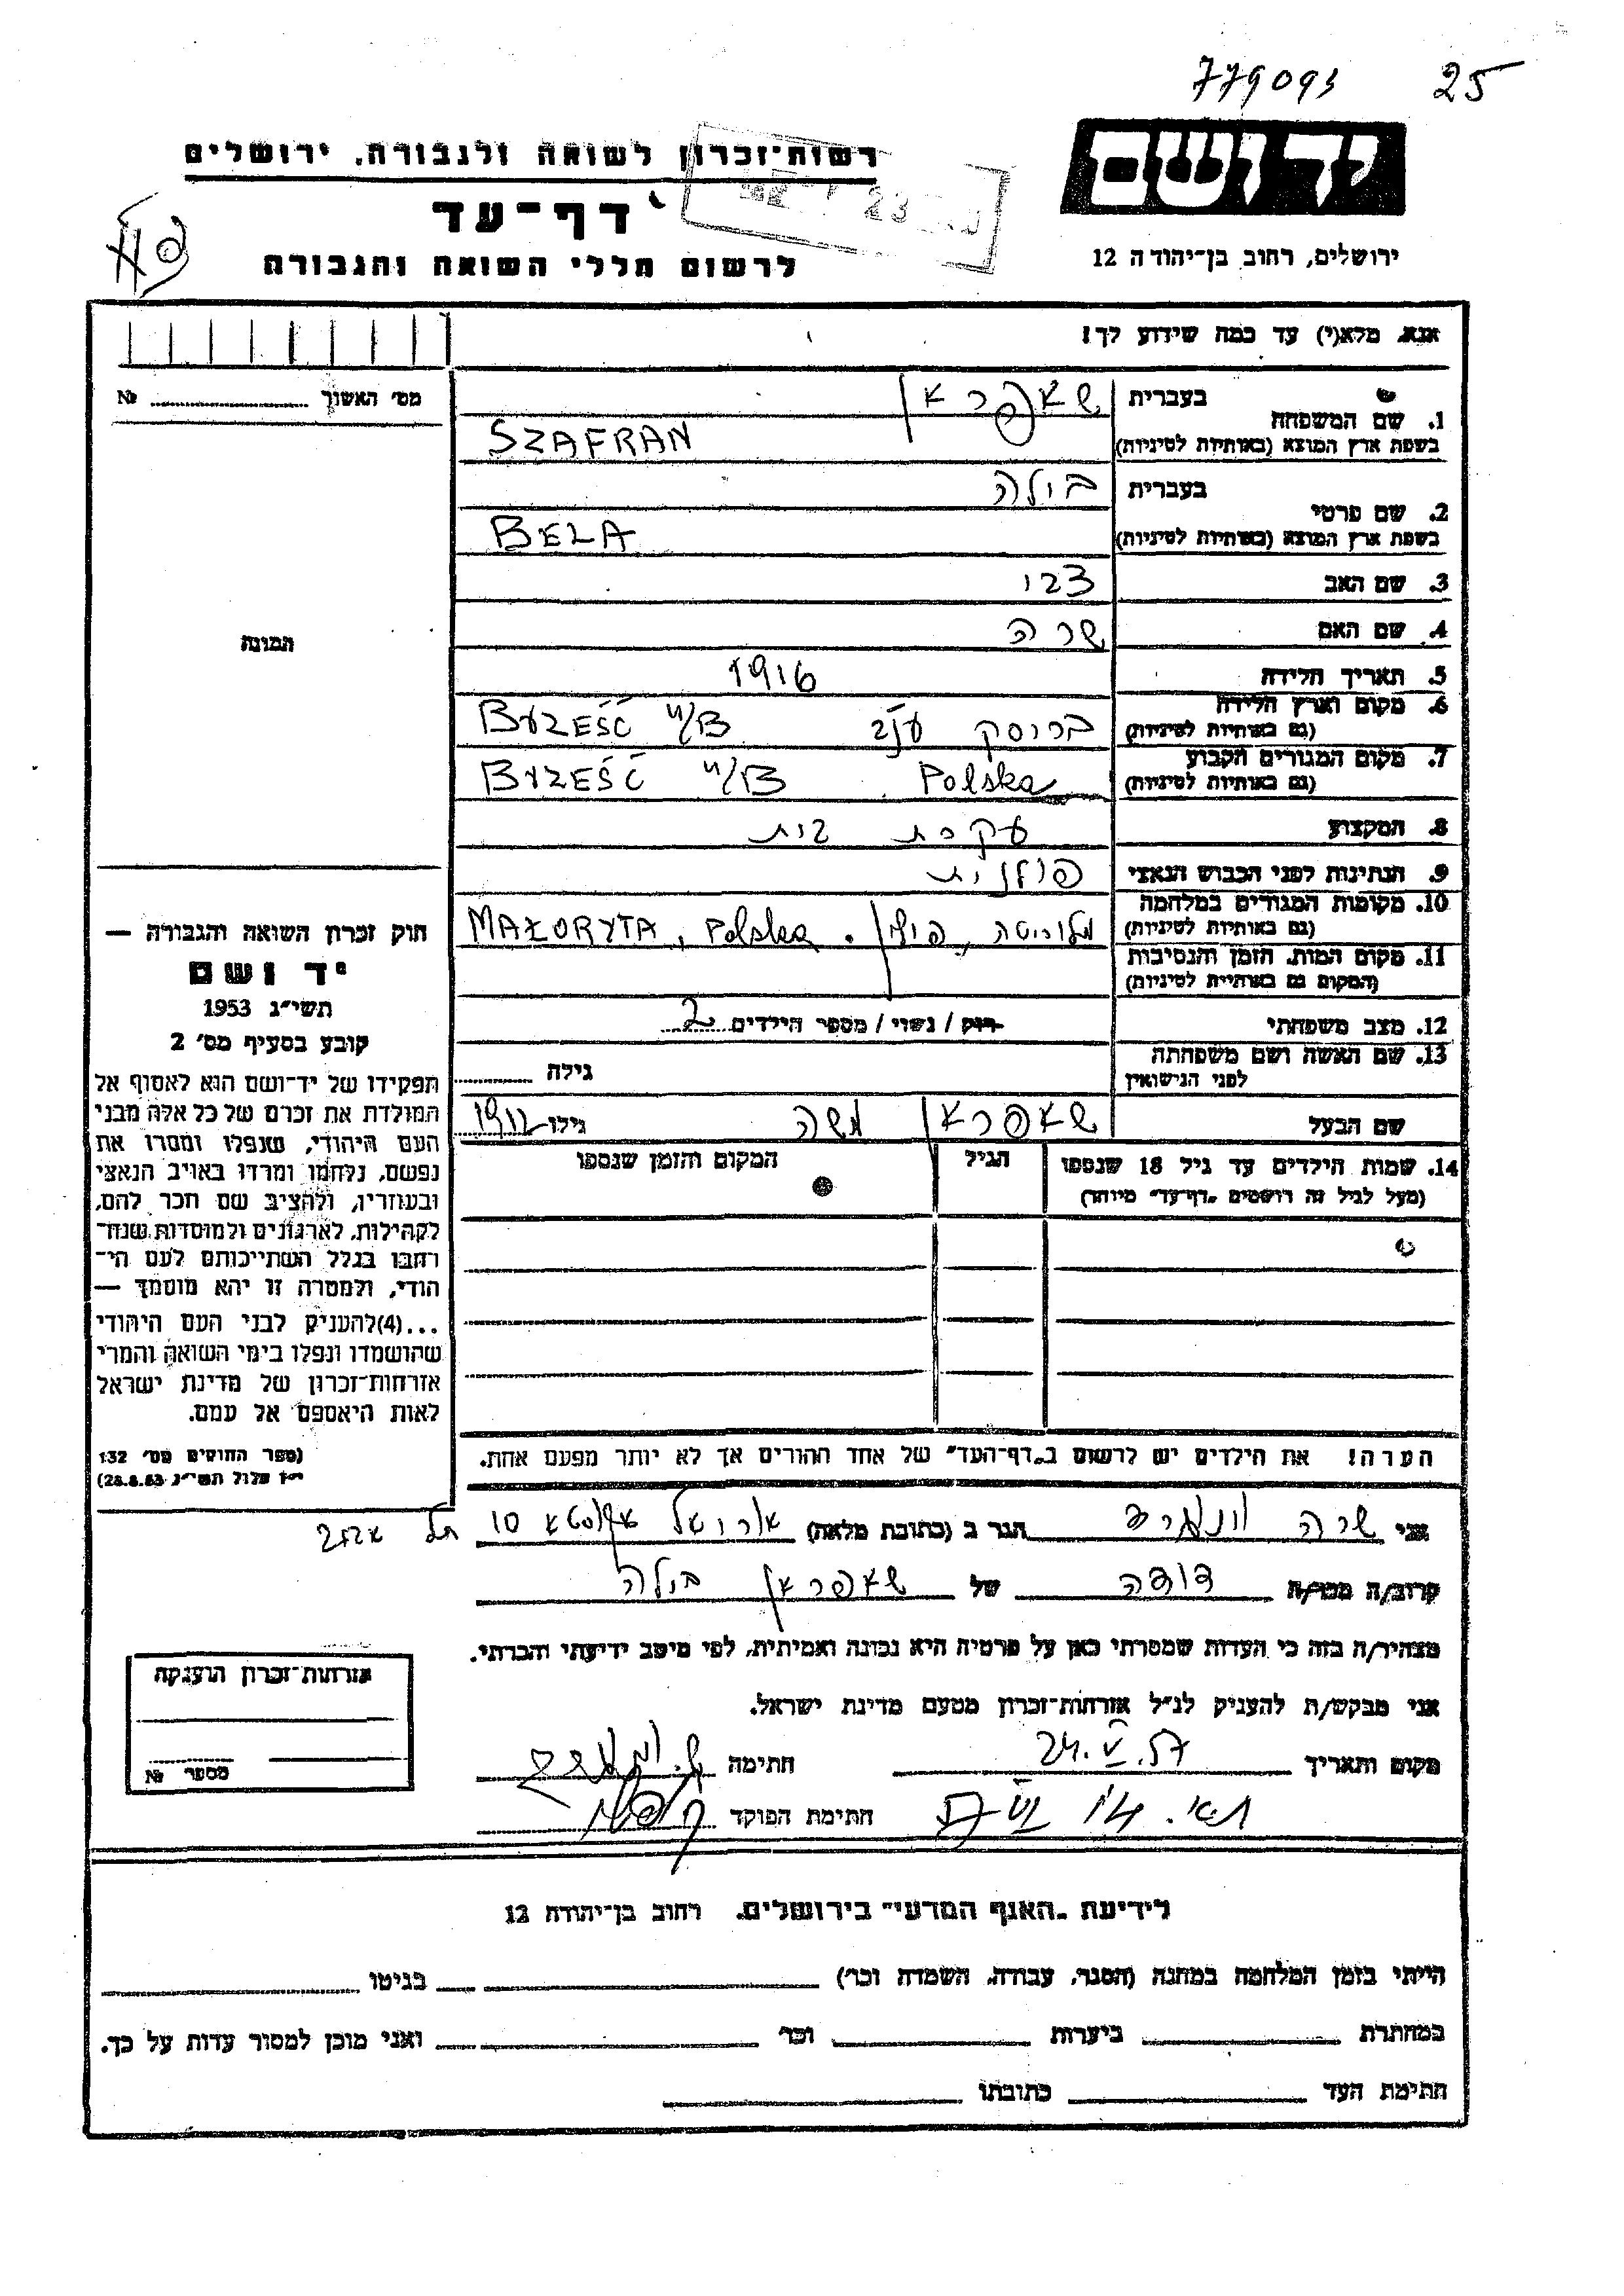 779093 25
יד ושם
ירושלים, רחוב בן־יהודה 12
רשות־זכרון לשואה ולגבורה, ירושלים
דף־עד
לרשום חללי השואה והגבורה
אנא, מלא(י) עד כמה שידוע לך!
בעברית שאפראן
1. שם המשפחה
בשפת ארץ המוצא (באותיות לטיניות) SZAFRAN
בעברית בילה
2. שם פרטי
בשפת ארץ המוצא (באותיות לטיניות) BELA
3. שם האב
4. שם האם שרה
5. תאריך הלידה 1916
6. מקום וארץ הלידה
(גם באותיות לטיניות) בריסק BRZEŚĆ n/B
7. מקום המגורים הקבוע
(גם באותיות לטיניות) Polska BRZEŚĆ n/B
8. המקצוע עקרת בית
9. הנתינות לפני הכבוש הנאצי פולנית
10. מקומות המגורים במלחמה
(גם באותיות לטיניות) מלוריטה, פולין. MAŁORYTA, Polska
11. מקום המות, הזמן והנסיבות
(המקום גם באותיות לטיניות)
12. מצב משפחתי רוק / נשוי / מספר הילדים 2
13. שם האשה ושם משפחתה
לפני הנישואין גילה
שם הבעל שאפראן משה גילו 1912
14. שמות הילדים עד גיל 18 שנספו הגיל המקום והזמן שנספו
(מעל לגיל זה רושמים "דף־עד" מיוחד)
הערה! את הילדים יש לרשום ב"דף־העד" של אחד ההורים אך לא יותר מפעם אחת.
מס' האשוך №
תמונה
חוק זכרון השואה והגבורה —
יד ושם
תשי"ג 1953
קובע בסעיף מס' 2
תפקידו של יד־ושם הוא לאסוף אל
המולדת את זכרם של כל אלה מבני
העם היהודי, שנפלו ומסרו את
נפשם, נלחמו ומרדו באויב הנאצי
ובעוזריו, ולהציב שם וזכר להם,
לקהילות, לארגונים ולמוסדות שנח־
רבו בגלל השתייכותם לעם הי־
הודי, ולמטרה זו יהא מוסמך —
...(4)להעניק לבני העם היהודי
שהושמדו ונפלו בימי השואה והמרי
אזרחות־זכרון של מדינת ישראל
לאות היאספם אל עמם.
(ספר החוקים מס' 132
י"ז אלול תשי"ג 28.8.53)
אני שרה הגר ב (כתובת מלאה) 10 תל אביב
קרוב/ה מכר/ה דודה של שאפראן בילה
מצהיר/ה בזה כי העדות שמסרתי כאן על פרטיה היא נכונה ואמיתית, לפי מיטב ידיעתי והכרתי.
אני מבקש/ת להעניק לנ"ל אזרחות־זכרון מטעם מדינת ישראל.
מקום ותאריך 24.V.57 חתימה
חתימת הפוקד
אזרחות־זכרון הוענקה
מספר №
לידיעת "האגף המדעי" בירושלים, רחוב בן־יהודה 12
הייתי בזמן המלחמה במחנה (הסגר, עבודה, השמדה וכו') בגיטו
במחתרת ביערות וכו' ואני מוכן למסור עדות על כך.
חתימת העד כתובתו